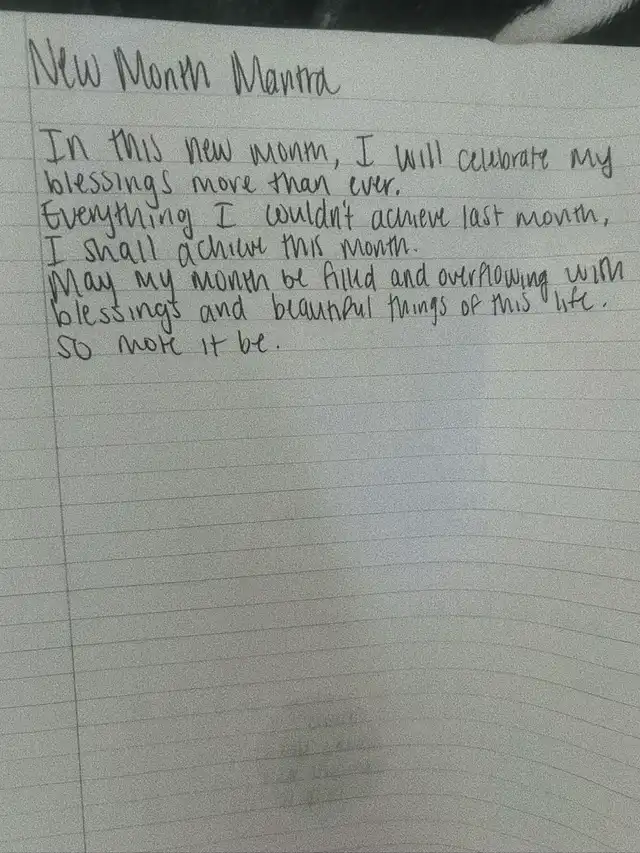 New Month Mantra
In this new month, I will celebrate my
blessings more than ever.
Everything I wouldn't achieve last month,
I shall achieve this month.
May my month be filled and overflowing with
blessings and beautiful things of this life.
So mote it be.